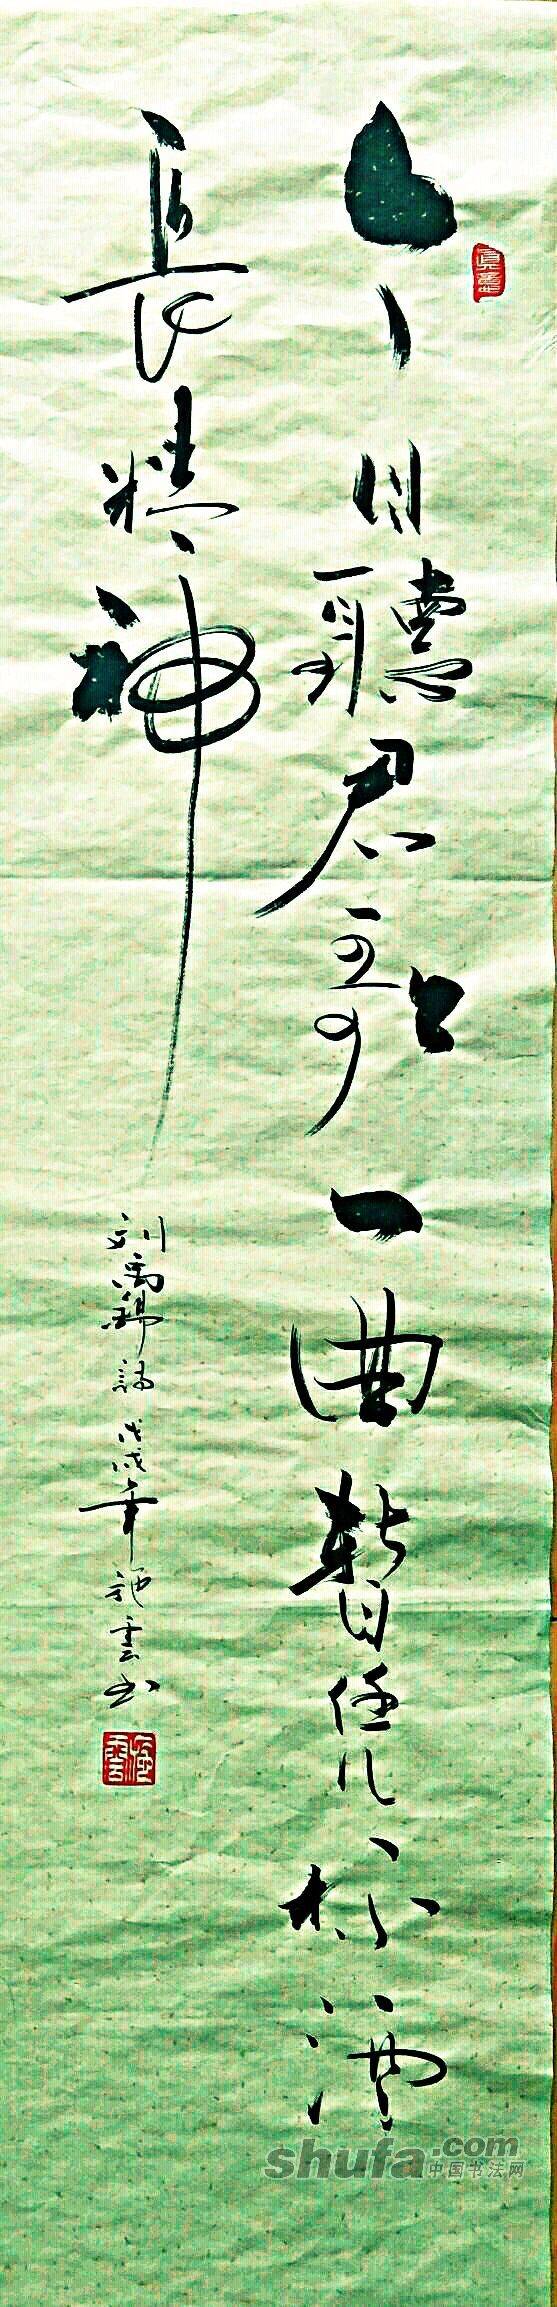 今日聽君歌一曲暫凭杯酒
長精神
刘禹錫詩 戊戌年 施雲书
shufa.com
中国书法网